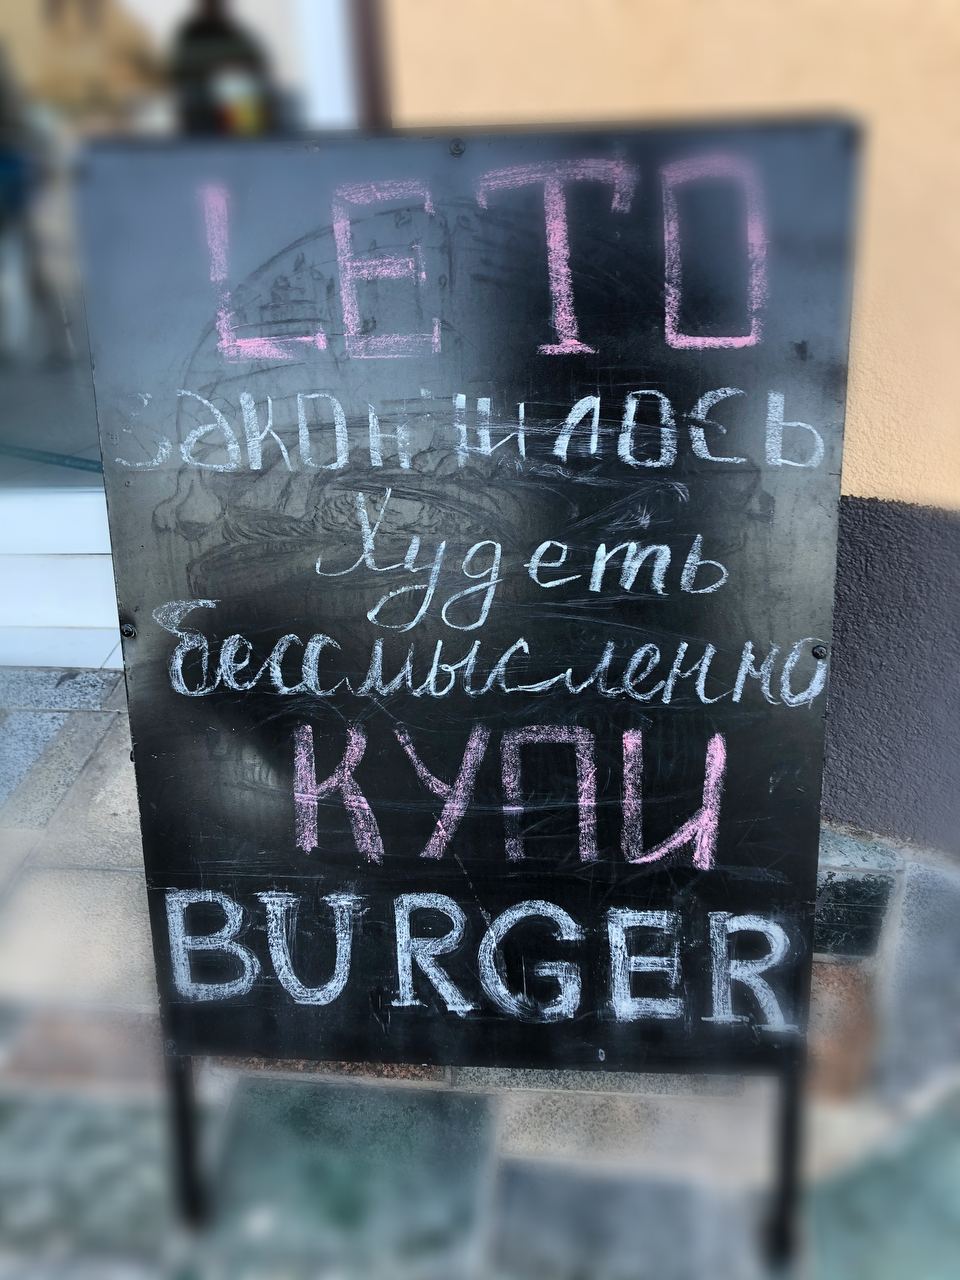 LETO
закончилось
Худеть
бессмысленно
КУПИ
BURGER